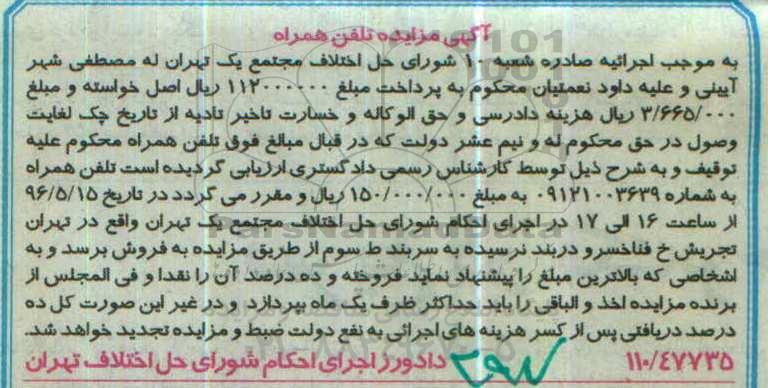 آگهی مزایده تلفن همراه
به موجب اجرائیه صادره شعبه ۱۰ شورای حل اختلاف مجتمع یک تهران له مصطفی شهر
آیینی و علیه داود نعمتیان محکوم به پرداخت مبلغ ۱۱۲۰۰۰۰۰۰ ریال اصل خواسته و مبلغ
۳/۶۶۵/۰۰۰ ریال هزینه دادرسی و حق الوکاله و خسارت تاخیر تادیه از تاریخ چک لغایت
وصول در حق محکوم له و نیم عشر دولت که در قبال مبالغ فوق تلفن همراه محکوم علیه
توقیف و به شرح ذیل توسط کارشناس رسمی دادگستری ارزیابی گردیده است تلفن همراه
به شماره ۰۹۱۲۱۰۰۳۶۳۹ به مبلغ ۱۵۰/۰۰۰/۰۰۰ ریال و مقرر می گردد در تاریخ ۹۶/۵/۱۵
از ساعت ۱۶ الی ۱۷ در اجرای احکام شورای حل اختلاف مجتمع یک تهران واقع در تهران
تجریش خ فناخسرو دربند نرسیده به سربند ط سوم از طریق مزایده به فروش برسد و به
اشخاصی که بالاترین مبلغ را پیشنهاد نماید فروخته و ده درصد آن را نقدا و فی المجلس از
برنده مزایده اخذ و الباقی را باید حداکثر ظرف یک ماه بپردازد و در غیر این صورت کل ده
درصد دریافتی پس از کسر هزینه های اجرائی به نفع دولت ضبط و مزایده تجدید خواهد شد.
۱۱۰/۴۷۷۳۵ دادورز اجرای احکام شورای حل اختلاف تهران